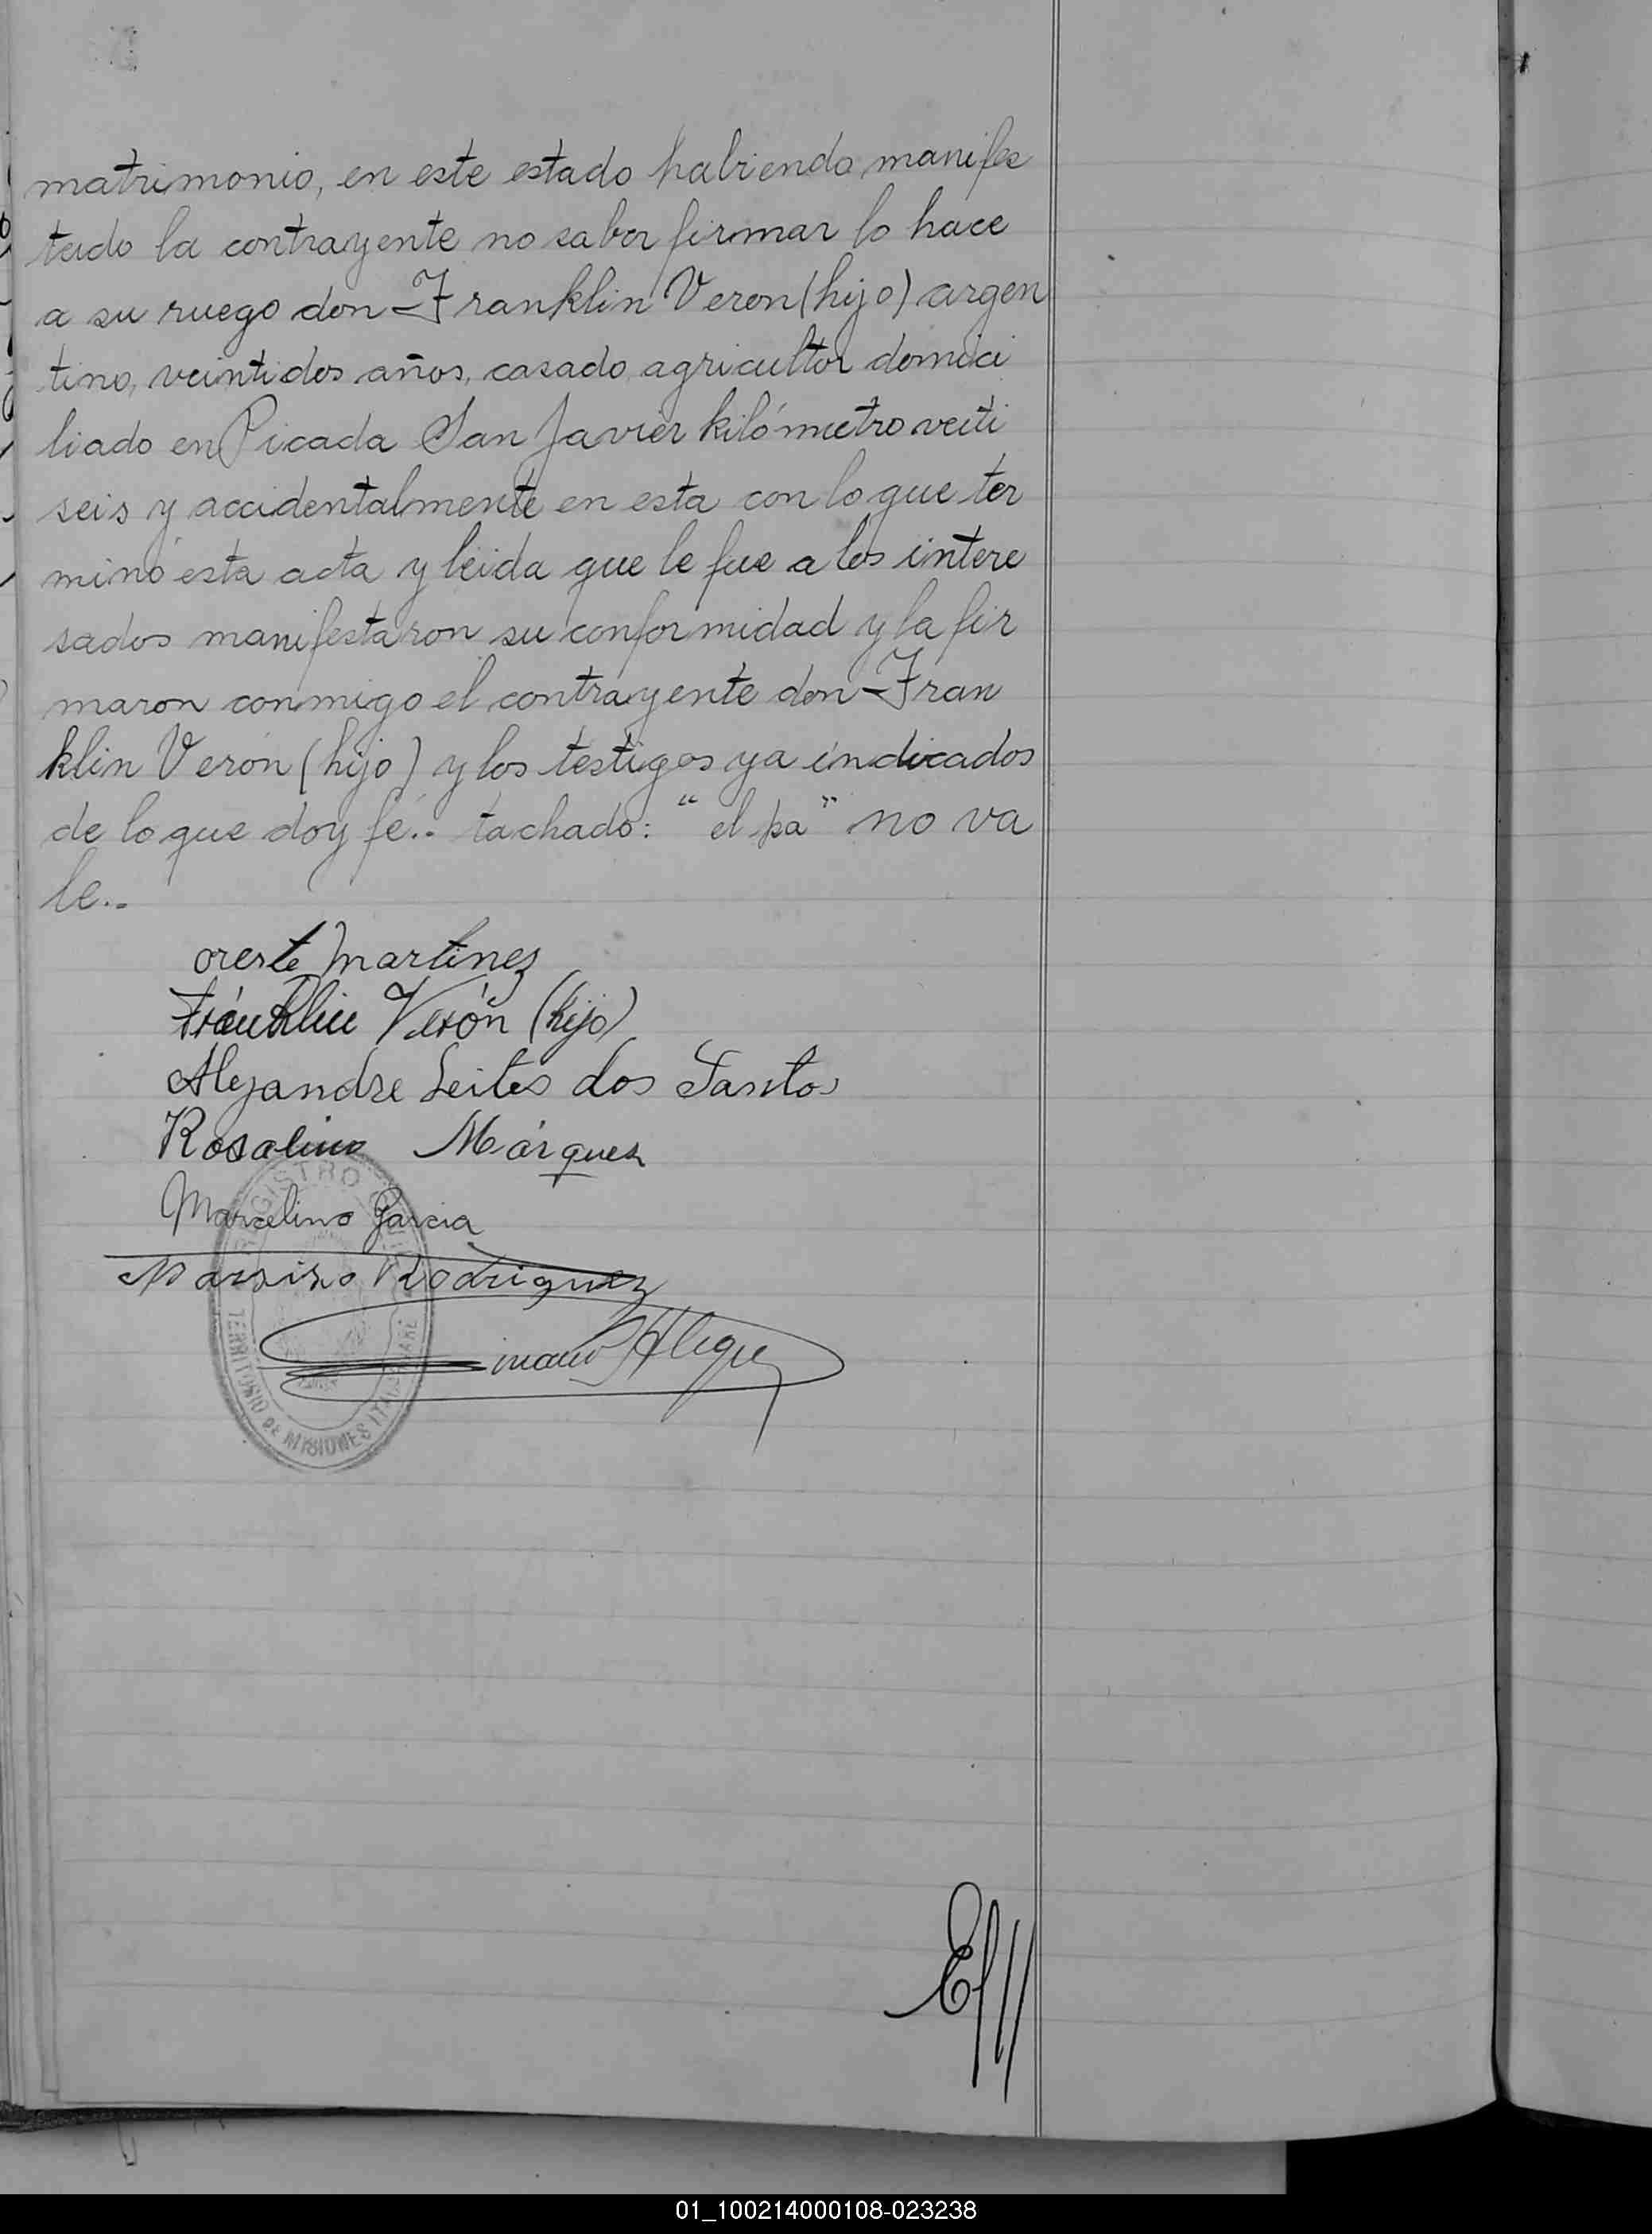 matrimonio, en este estado habiendo manifes
tado la contrayente no saber firmar lo hace
a su ruego don Franklin Veron (hijo) argen
tino, veintidos años, casado agricultor domici
liado en Picada San Javier kilómetro veiti
seis y accidentalmente en esta con lo que ter
minó esta acta y leida que le fue a los intere
sados manifestaron su conformidad y la fir
maron conmigo el contrayente don Fran
klin Verón (hijo) y los testigos ya indicados
de lo que doy fé.. tachado: "el pa" no va
le..
oreste Martinez
Franklin Verón (hijo)
Alejandre Leites dos Santos
Rosalino Márquez
Marcelino Garcia
Narsiso Rodriguez
REGISTRO CIVIL
TERRITORIO DE MISIONES
01_100214000108-023238